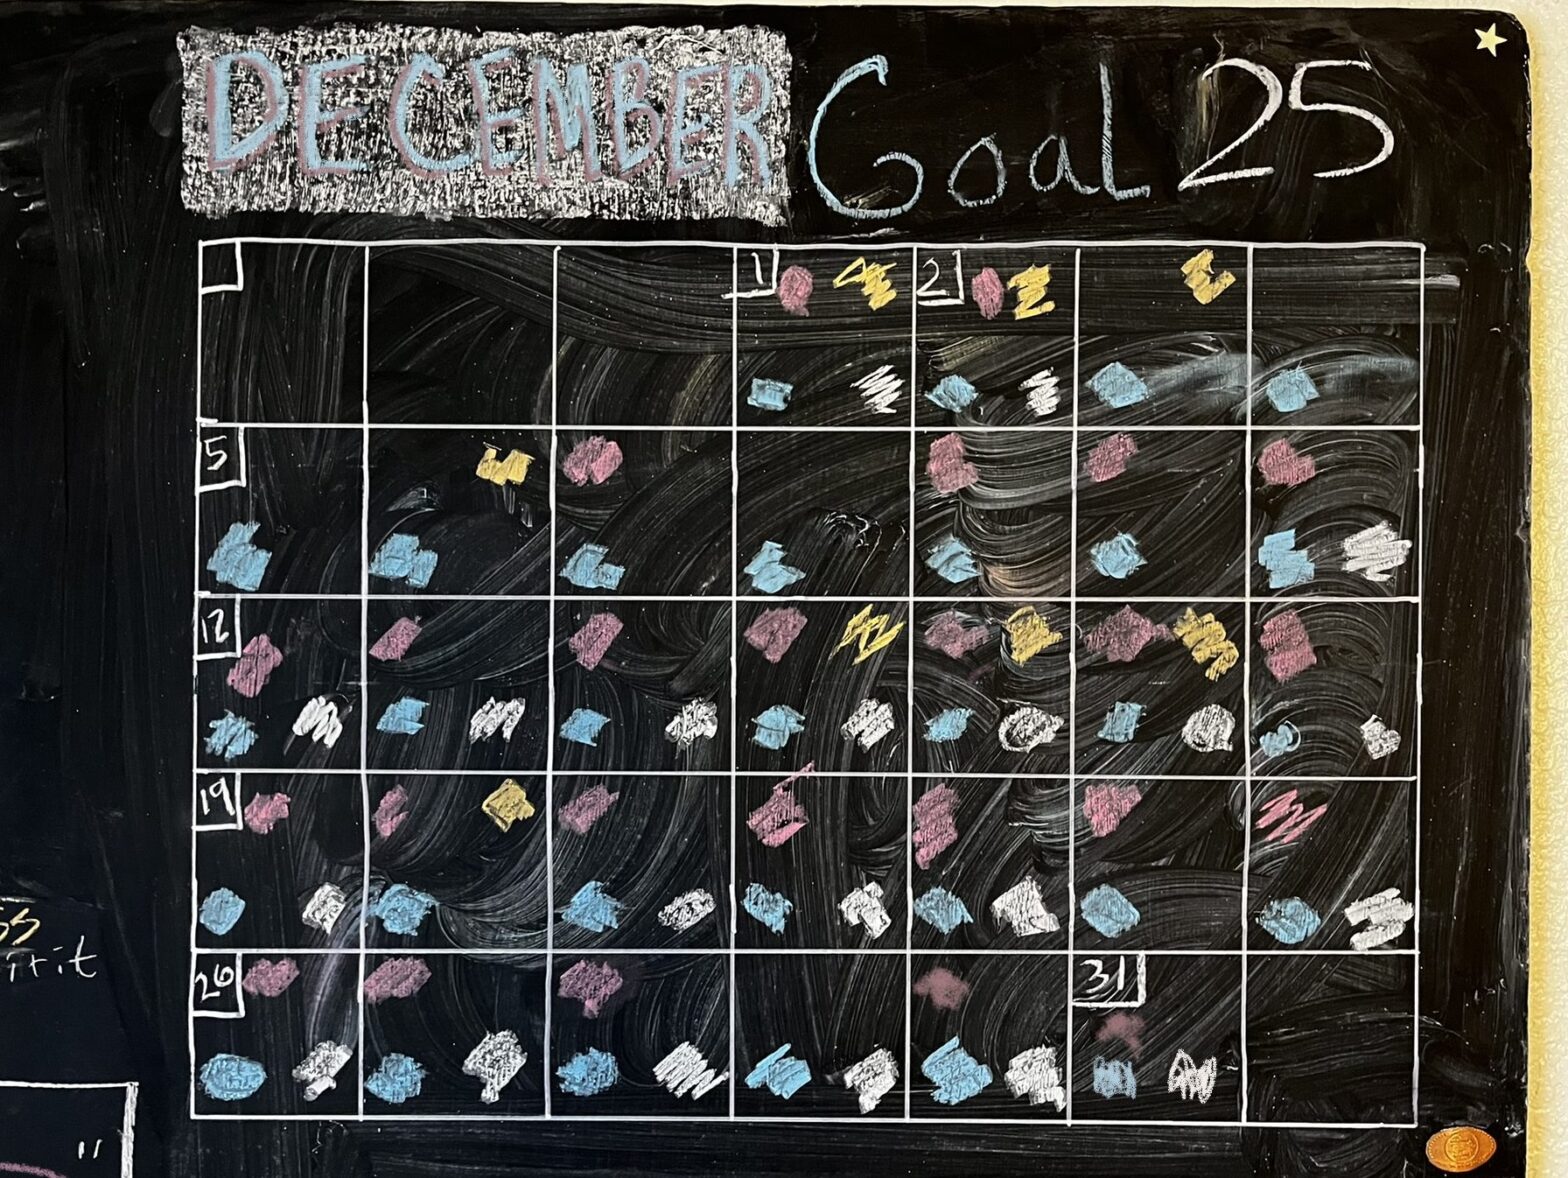 DECEMBER Goal 25
1 2
5
12
19
26
31